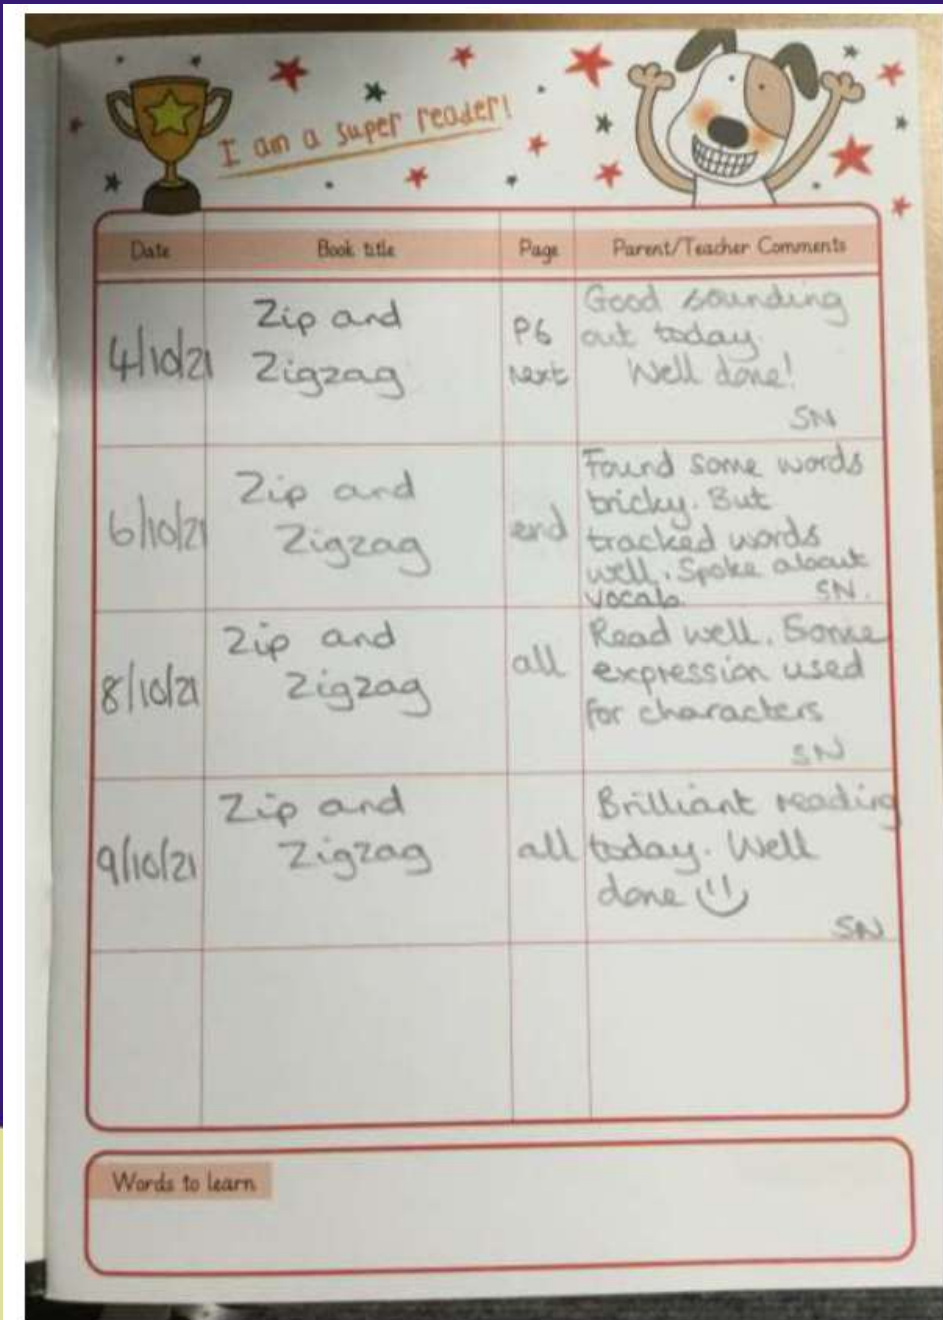 I am a super reader!
Date Book title Page Parent/Teacher Comments
4/10/21
Zip and
Zigzag
P6
next
Good sounding
out today.
Well done!
SN
6/10/21
Zip and
Zigzag
end
Found some words
tricky. But
tracked words
well. Spoke about
vocab. SN.
8/10/21
Zip and
Zigzag
all
Read well. Some
expression used
for characters
SN
9/10/21
Zip and
Zigzag
all
Brilliant reading
today. Well
done
SN
Words to learn